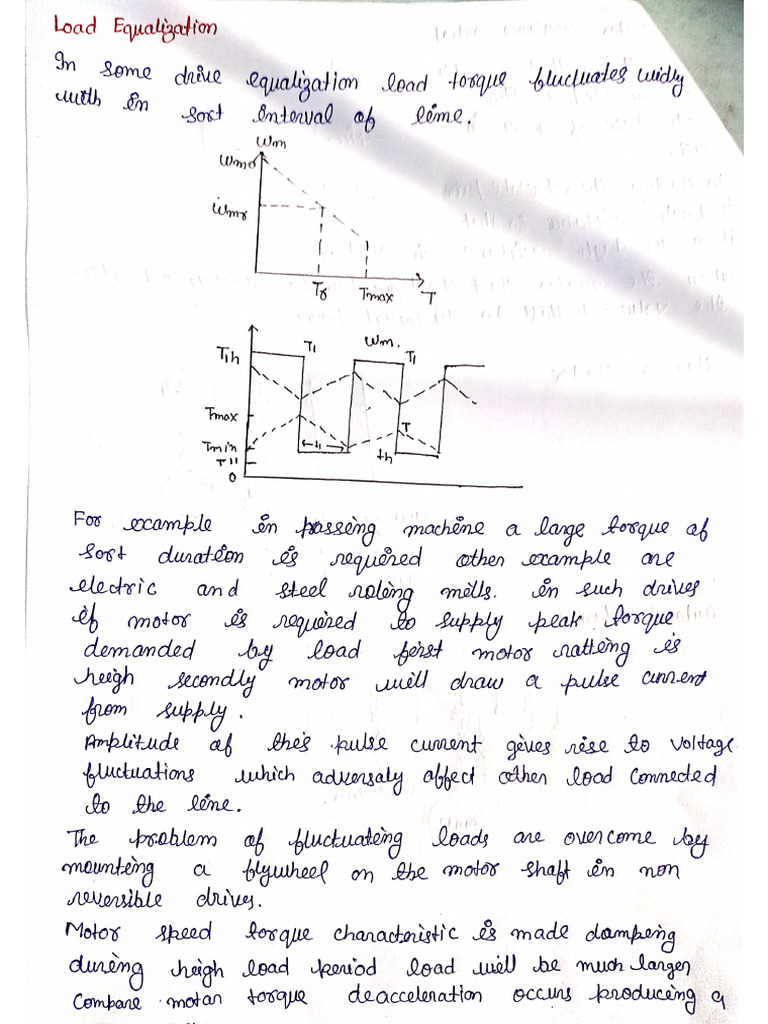 Load Equalization
In some drive equalization load torque fluctuates widly
with in sort interval of time.
Wm
Wmo
Wmr
Tr Tmax T
T1h T1 Wm. T1
Tmax
T
Tmin t1
T11 th
0
For example in passing machine a large torque of
sort duration is required other example are
electric and steel roling mills. in such drives
if motor is required to supply peak torque
demanded by load first motor ratting is
heigh secondly motor will draw a pulse current
from supply.
Amplitude of this pulse current gives rise to voltage
fluctuations which adversaly affect other load connected
to the line.
The problem of fluctuating loads are overcome by
mounting a flywheel on the motor shaft in non
reversible drives.
Motor speed torque characteristic is made damping
during heigh load period load will be much larger
compare motar torque deacceleration occurs producing a